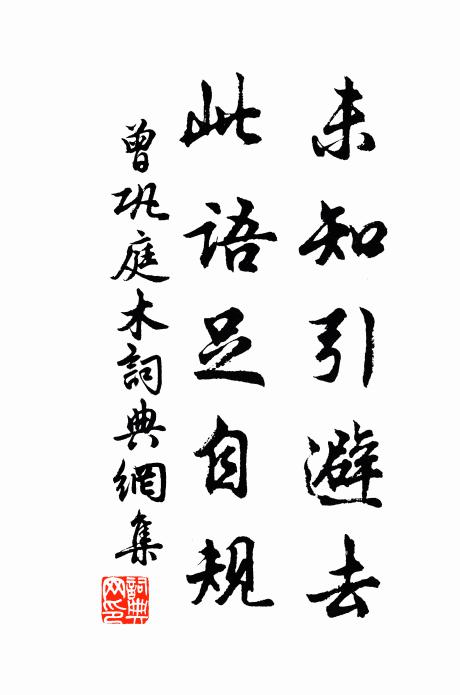 未知引避去
此語足自規
曾巩庭木詞典網集
詞典網印